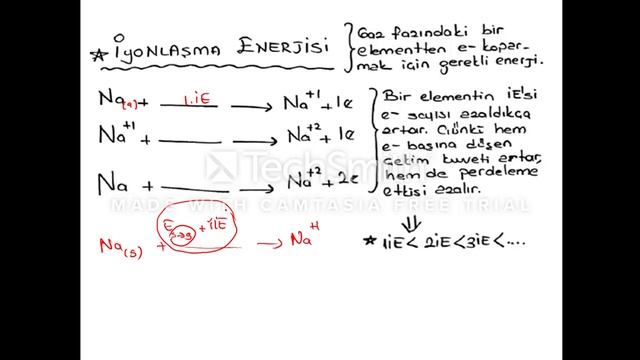 * İYONLAŞMA ENERJİSİ
Gaz fazındaki bir
elementten e- kopar-
mak için gerekli enerji.
Na(g) + 1.iE → Na+1 + 1e
Na+1 + ____ → Na+2 + 1e
Na + ____ → Na+2 + 2e
Na(s) + E s→g + 1iE → Na+1
Bir elementin iE'si
e- sayısı azaldıkça
artar. Çünkü hem
e- başına düşen
çekim kuvveti artar,
hem de perdeleme
etkisi azalır.
⇓
* 1iE < 2iE < 3iE < ....
TechSmith
MADE WITH CAMTASIA FREE TRIAL